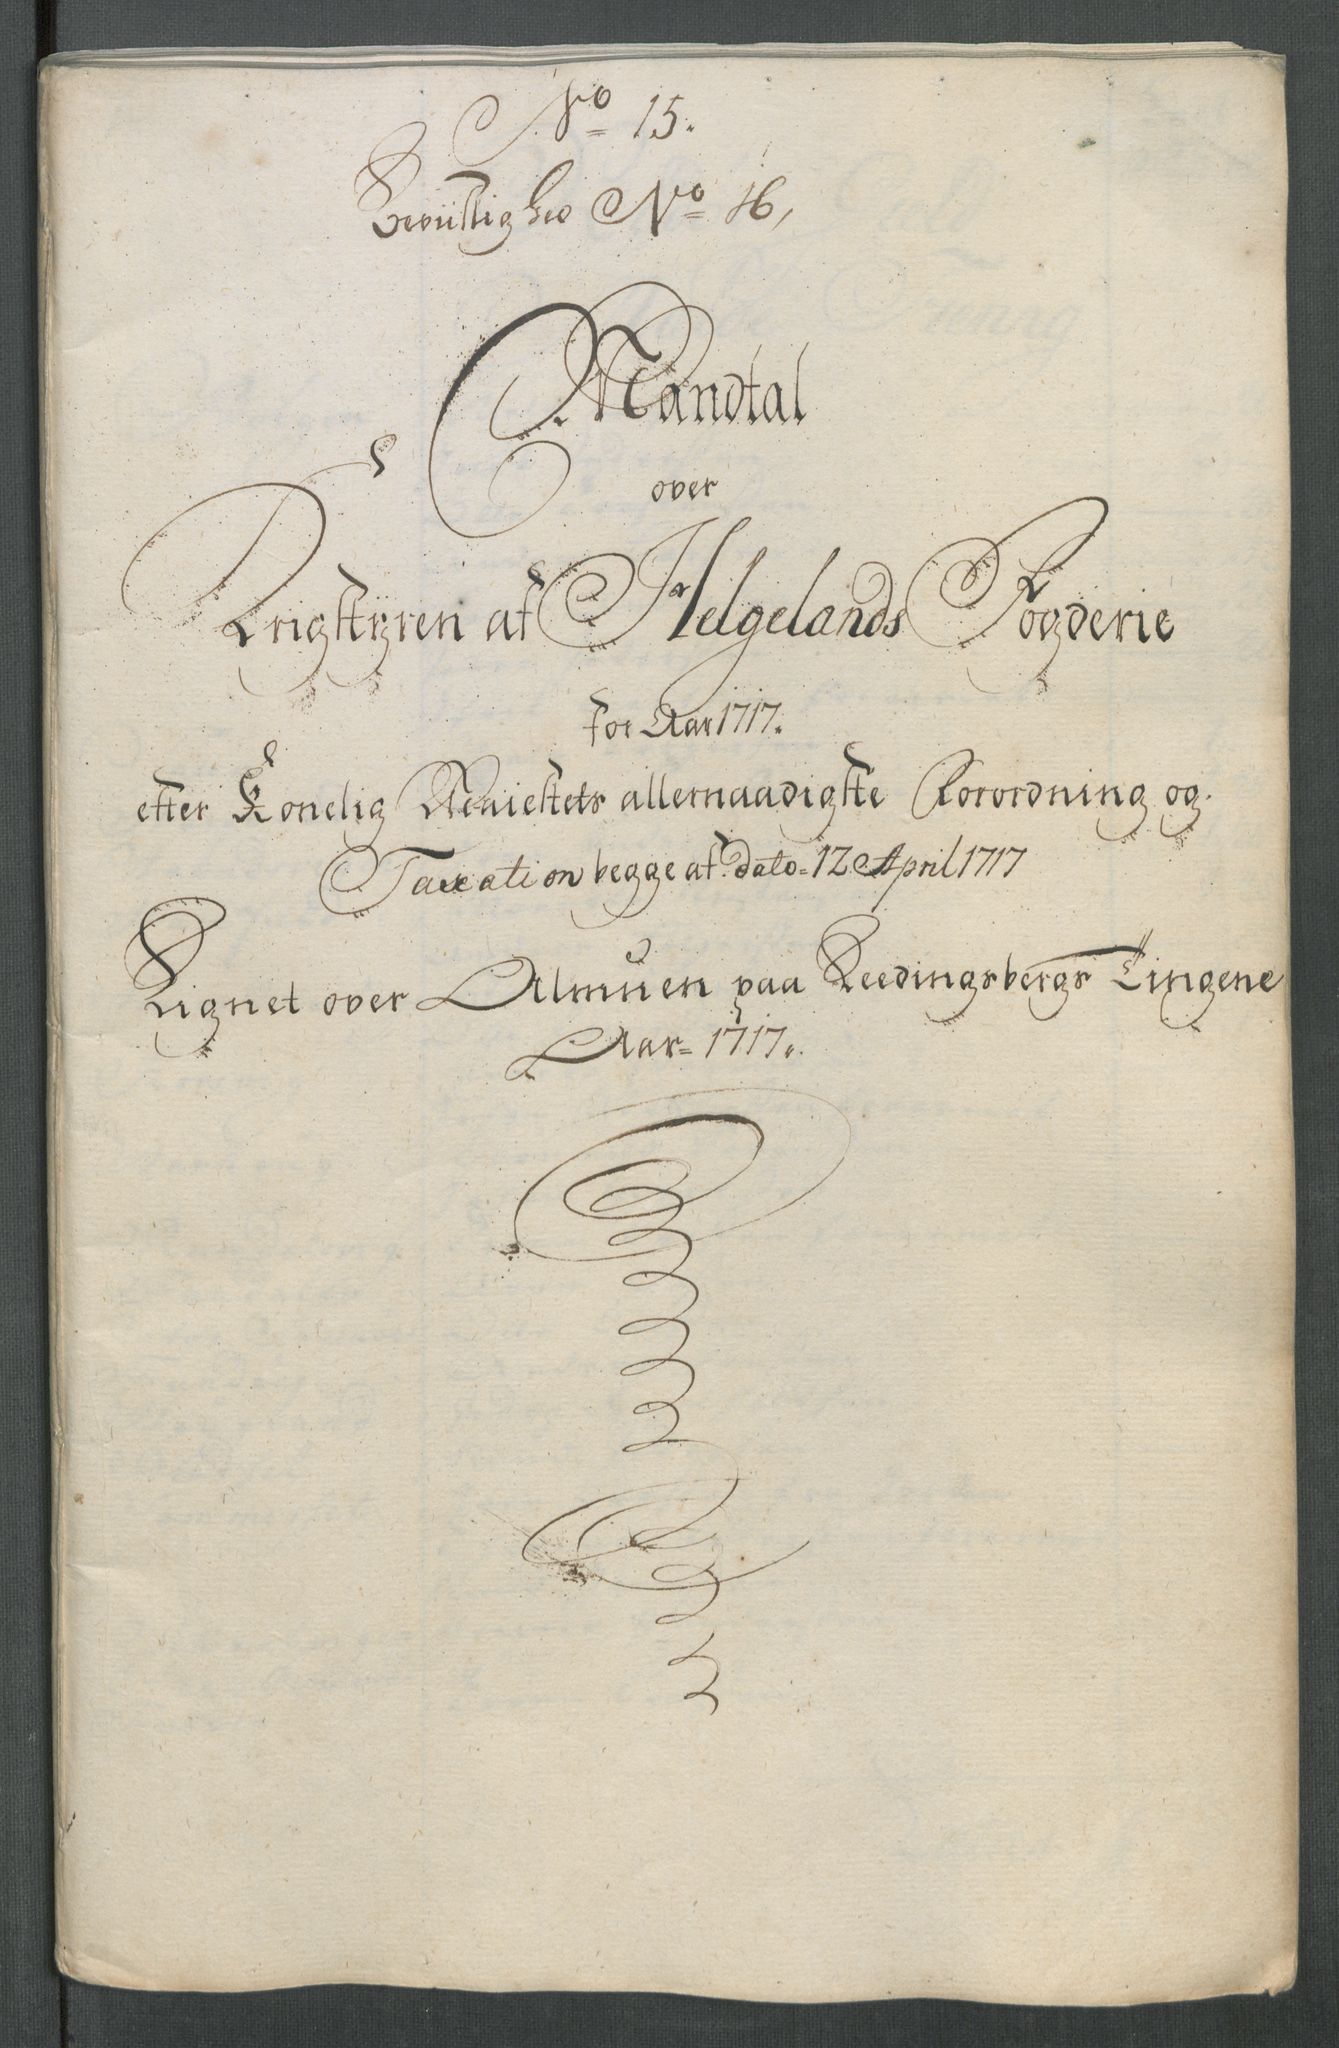 No 15.
No 16,
Mandtal
over
Krigstyren af Helgelands Fogderie
for Aar 1717.
efter Konelig Mayestets allernaadigste Forordning og
Taxation begge af dato 12 April 1717
Lignet over Almuen paa Leedingsbergs Tingene
Aar 1717.